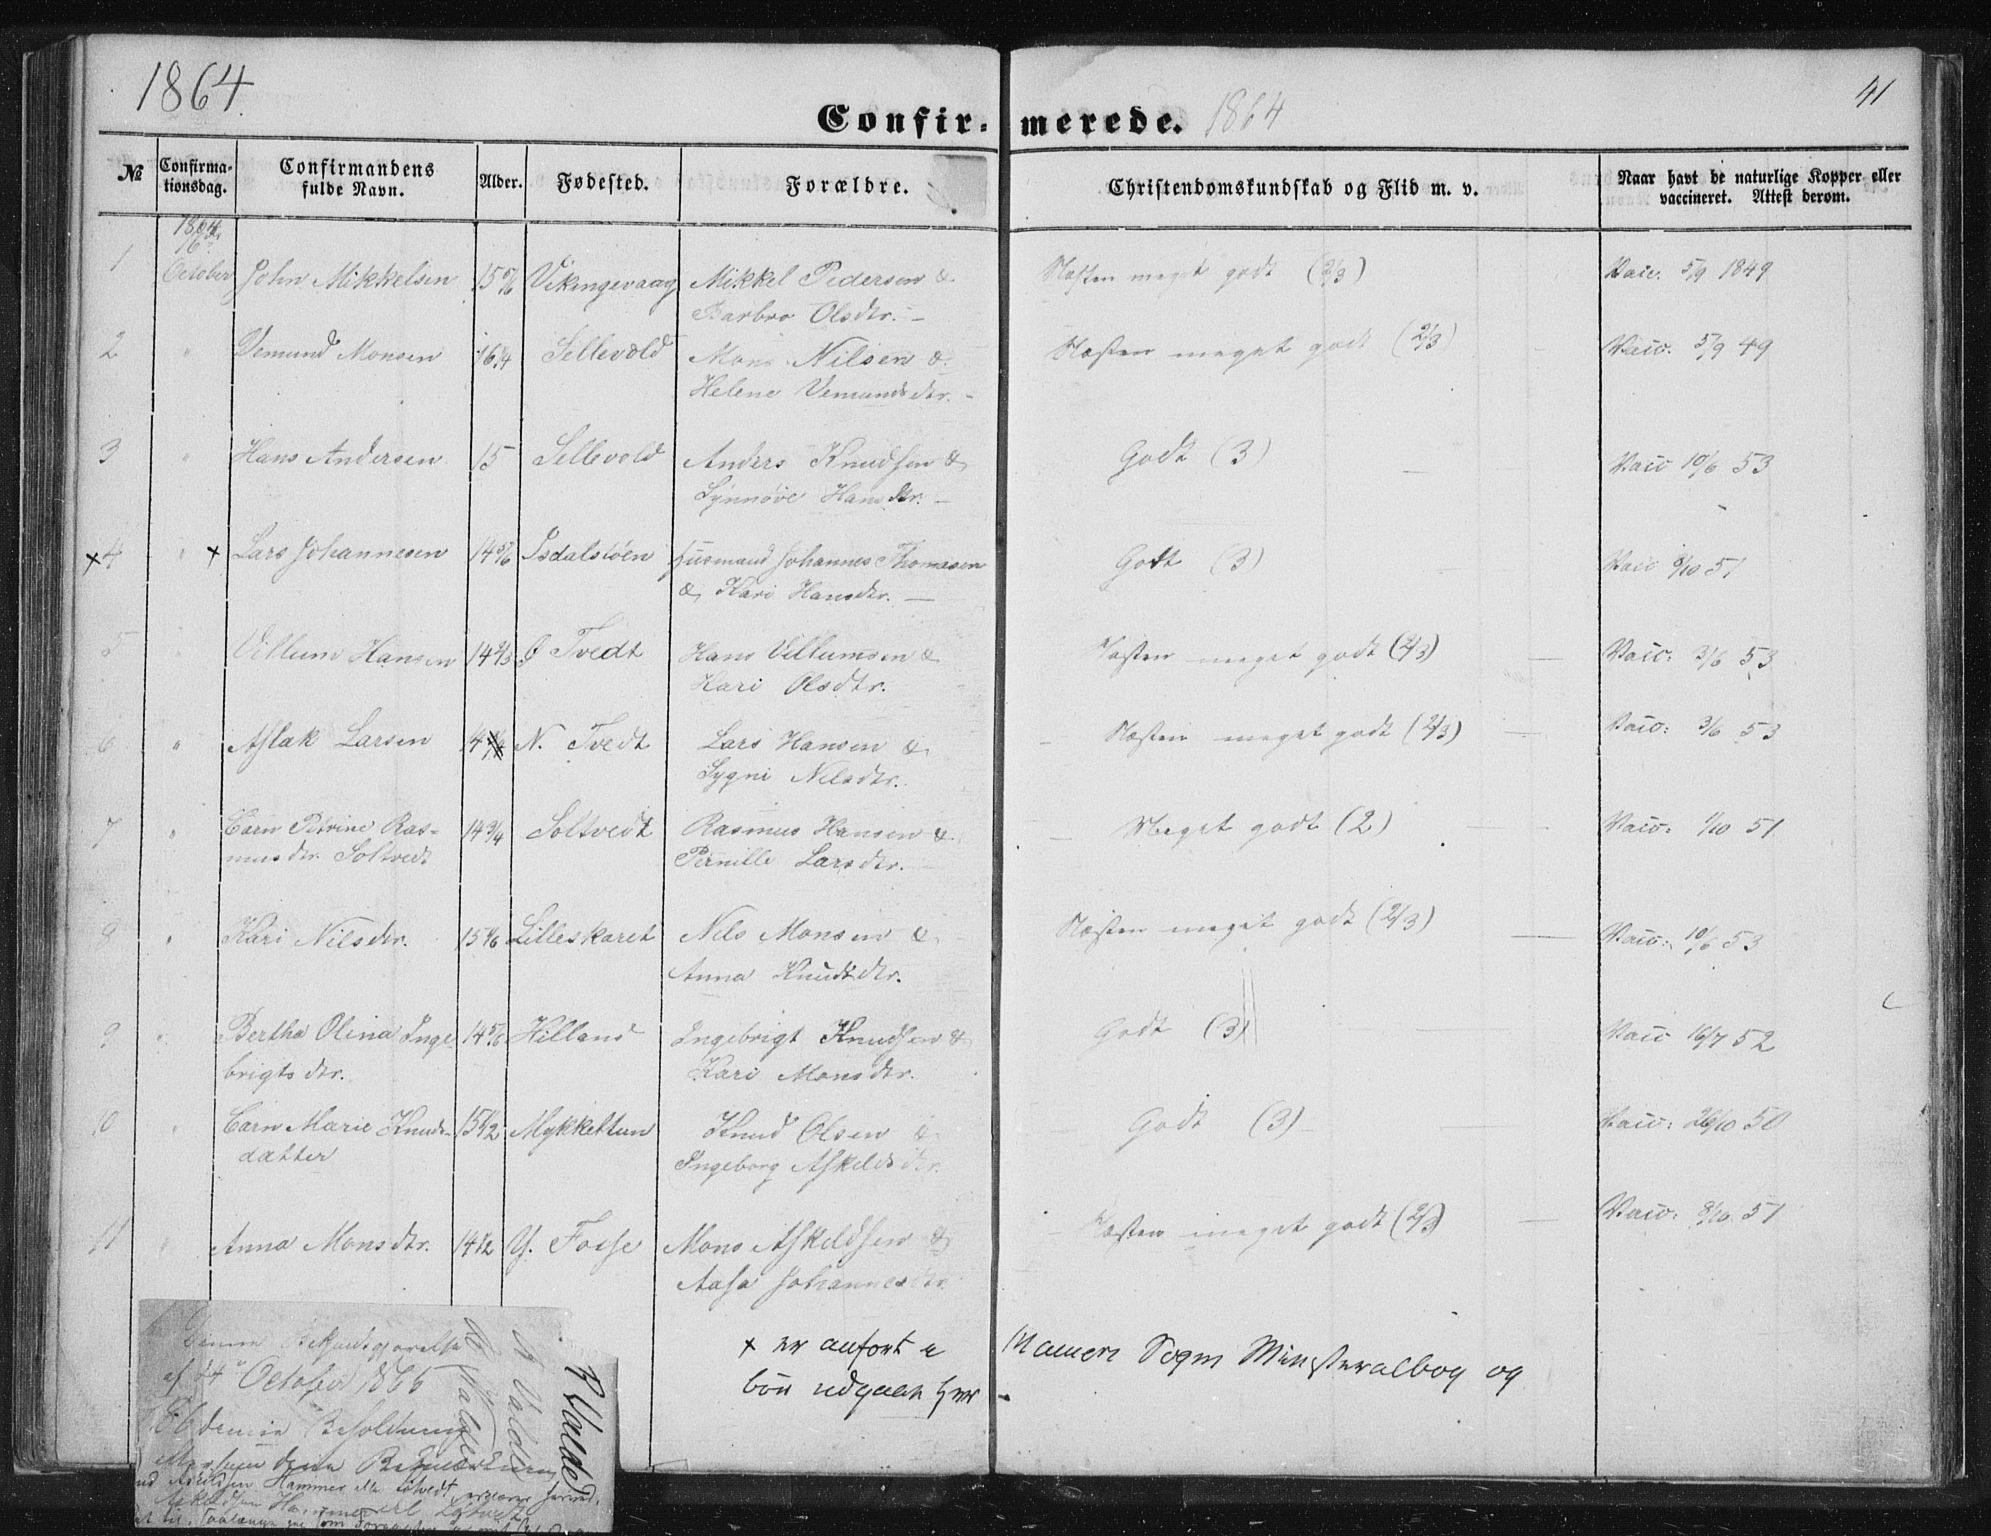 1864
41
Confir- merede. 1864
№ Confirma- Confirmandens Alder. Fødested. Forældre. Christendomskundskab og Flid m. v. Naar havt de naturlige Kopper eller
tionsdag. fulde Navn. vaccineret. Attest derom.
1864
16de
1 October John Mikkelsen 15 5/6 Vikingevaag Mikkel Pedersen & Næsten meget godt (2/3) Vacc. 5/9 1849
Barbro Olsdtr. -
2 " Vemund Monsen 16 1/4 Sellevold Mons Nilsen & Næsten meget godt (2/3) Vacc. 5/9 49
Helene Vemundsdtr. -
3 " Hans Andersen 15 Sellevold Anders Knudsen & Godt (3) Vacc 10/6 53
Synnøve Hansdtr. -
x 4 " x Lars Johannesen 14 5/6 Isdalstøen Husmand Johannes Thomasen Godt (3) Vacc 8/10 51
& Kari Hansdtr. -
5 " Villum Hansen 14 2/3 Ø Tvedt Hans Villumsen & Næsten meget godt (2/3) Vacc: 3/6 53
Kari Olsdtr.
6 " Aslak Larsen 14 N. Tvedt Lars Hansen & Næsten meget godt (2/3) Vacc: 3/6 53
Sygni Nilsdtr.
7 " Carn Petrine Ras- 14 3/4 Soltvedt Rasmus Hansen & Meget godt (2) Vacc: /10 51
musdtr. Soltvedt Pernille Larsdtr.
8 " Kari Nilsdtr. 15 1/6 Lilleskaret Nils Monsen & Næsten meget godt (2/3) Vacc: 10/6 53
Anna Knudsdtr.
9 " Bertha Olina Inge- 14 5/6 Hilland Ingebrigt Knudsen & Godt (3) Vacc 16/7 52
brigtsdtr. Kari Monsdtr.
10 " Carn Marie Knuds- 15 1/2 Mykkeltun Knud Olsen & Godt (3) Vacc: 26/10 50
datter Ingeborg Askeldsdtr.
11 " Anna Monsdtr. 14 1/2 Y. Fosse Mons Askeldsen & Næsten meget godt (2/3) Vacc: 8/10 51
Aasa Johannesdtr.
x er anført i Hamere Sogns Ministeralbog og
bør udgaae her -
Denne Bekjendtgjørelse
af 24 October 1866
denne Beholdning
denne Bekjendtgjørelse
R Valde